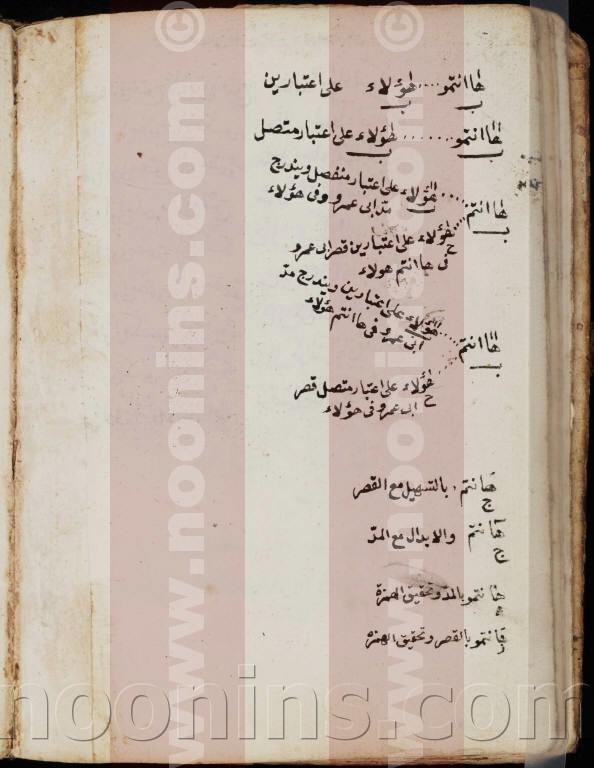 هاانتمو .... هؤلاء على اعتبارين
ب ب
هاانتمو ...... هؤلاء على اعتبار متصل
ب ب
هاانتم .... هؤلاء على اعتبار منفصل ويندرج
ب ب
مد ابى عمرو وفى هؤلاء
هؤلاء على اعتبارين قصر ابى عمرو
ح
فى هاانتم هولاء
هاانتم .... هؤلاء على اعتبارين ويندرج مد
ب
ابى عمرو فى هاانتم هؤلاء
هؤلاء على اعتبار متصل قصر
ح
ابى عمرو فى هؤلاء
هانتم . بالتسهيل مع القصر
ج
هآنتم والابدال مع المد
ج
هانتمو بالمد وتحقيق الهمزة
ه
قانتمو بالقصر وتحقيق الهمزه
ز
www.noonins.com ©
www.noonins.com ©
noonins.com